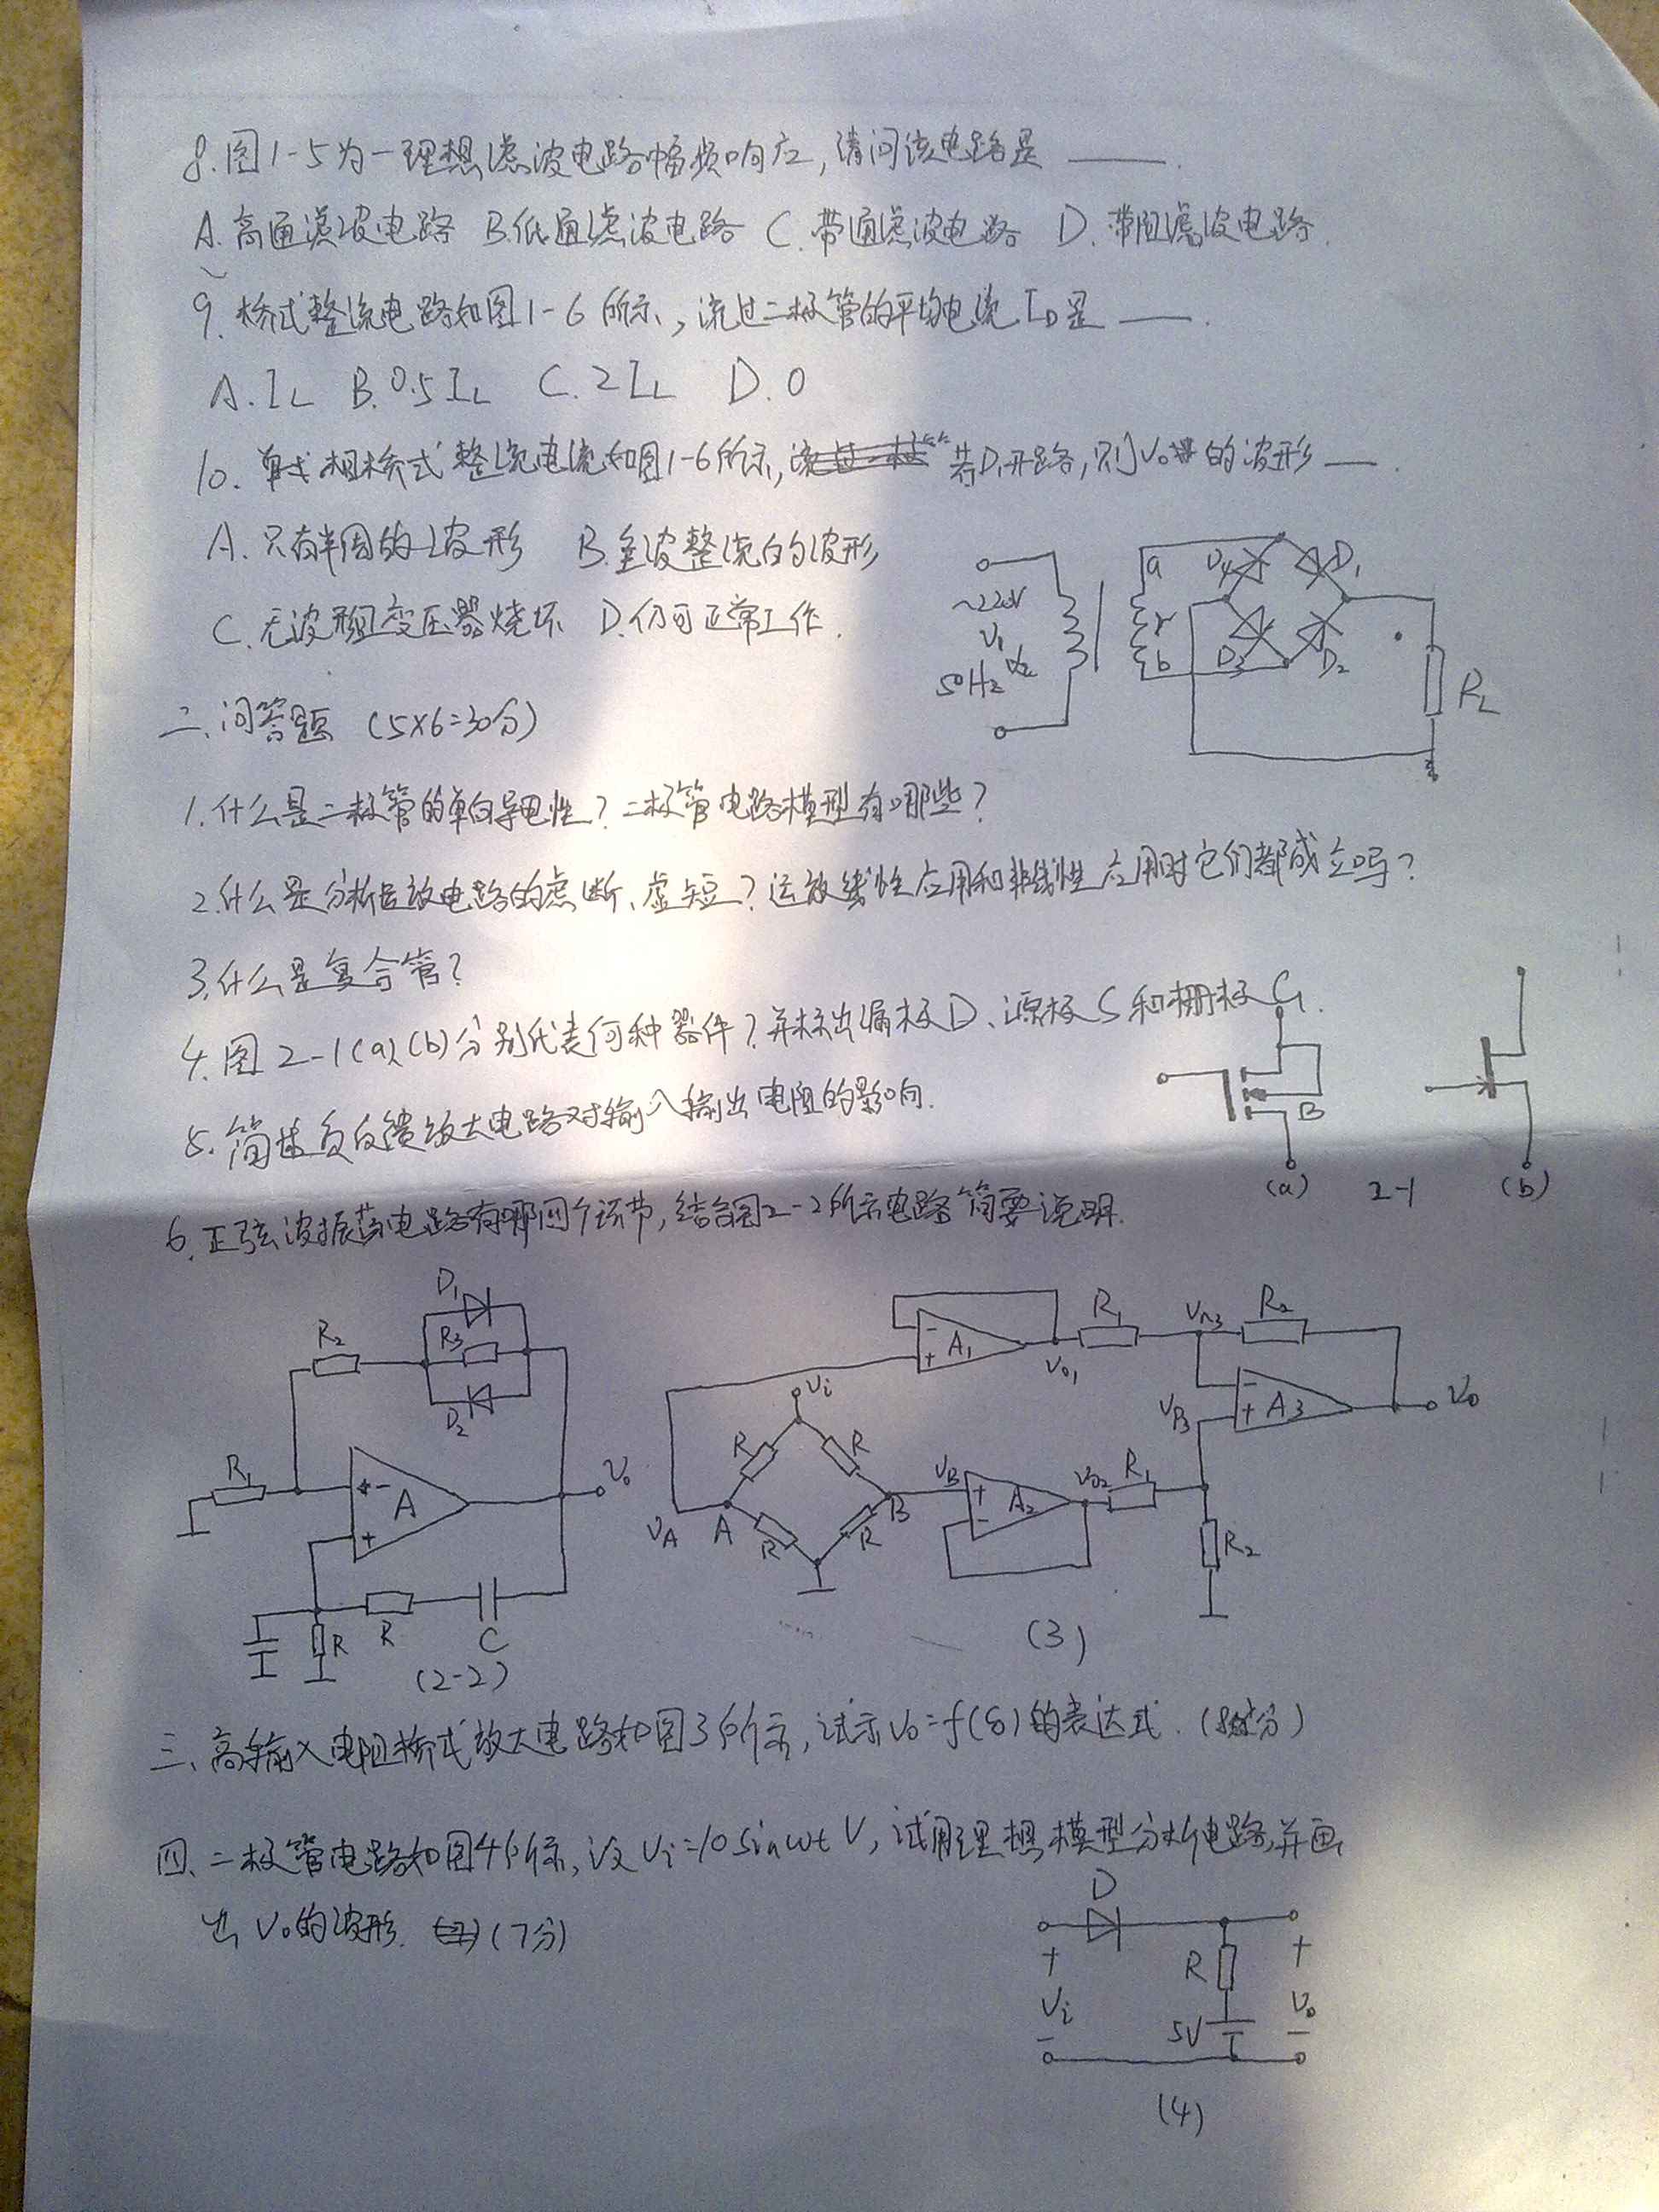 8.图1-5为一理想滤波电路幅频响应,请问该电路是 ____.
A.高通滤波电路 B.低通滤波电路 C.带通滤波电路 D.带阻滤波电路.
9.桥式整流电路如图1-6所示,流过二极管的平均电流ID是 ____.
A.IL B.0.5IL C.2IL D.0
10.单相桥式整流电流如图1-6所示,若D1开路,则Vo的波形 __.
A.只有半周的波形 B.全波整流的波形
C.无波形且变压器烧坏 D.仍可正常工作.
~220V
V1
50Hz
a
b
D4
D1
D3
D2
RL
二、问答题 (5X6=30分)
1.什么是二极管的单向导电性?二极管电路模型有哪些?
2.什么是分析运放电路的虚断、虚短?运放线性应用和非线性应用时它们都成立吗?
3.什么是复合管?
4.图2-1(a)、(b)分别代表何种器件?并标出漏极D、源极S和栅极G.
B
(a) 2-1 (b)
5.简述负反馈放大电路对输入输出电阻的影响.
6.正弦波振荡电路有哪四个环节,结合图2-2所示电路简要说明.
D1
R2 R3
D2
R1
A
-
+
Vo
R R C
(2-2)
A1
-
+
Vo1
R1
VA3
R2
Vi
R R
VA A
R R
B
VB
A2
+
-
Vo2
R1
VB3
A3
-
+
Vo
R2
(3)
三、高输入电阻桥式放大电路如图3所示,试示Vo=f(δ)的表达式.(8分)
四、二极管电路如图4所示,设Vi=10sinωt V,试用理想模型分析电路,并画
出Vo的波形. (7分)
D
+
Vi
-
R
5V
+
Vo
-
(4)